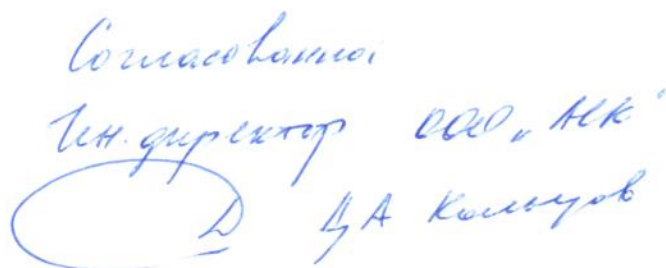 Согласованно:
Ген. директор ООО „АСК"
Д А Кольцов